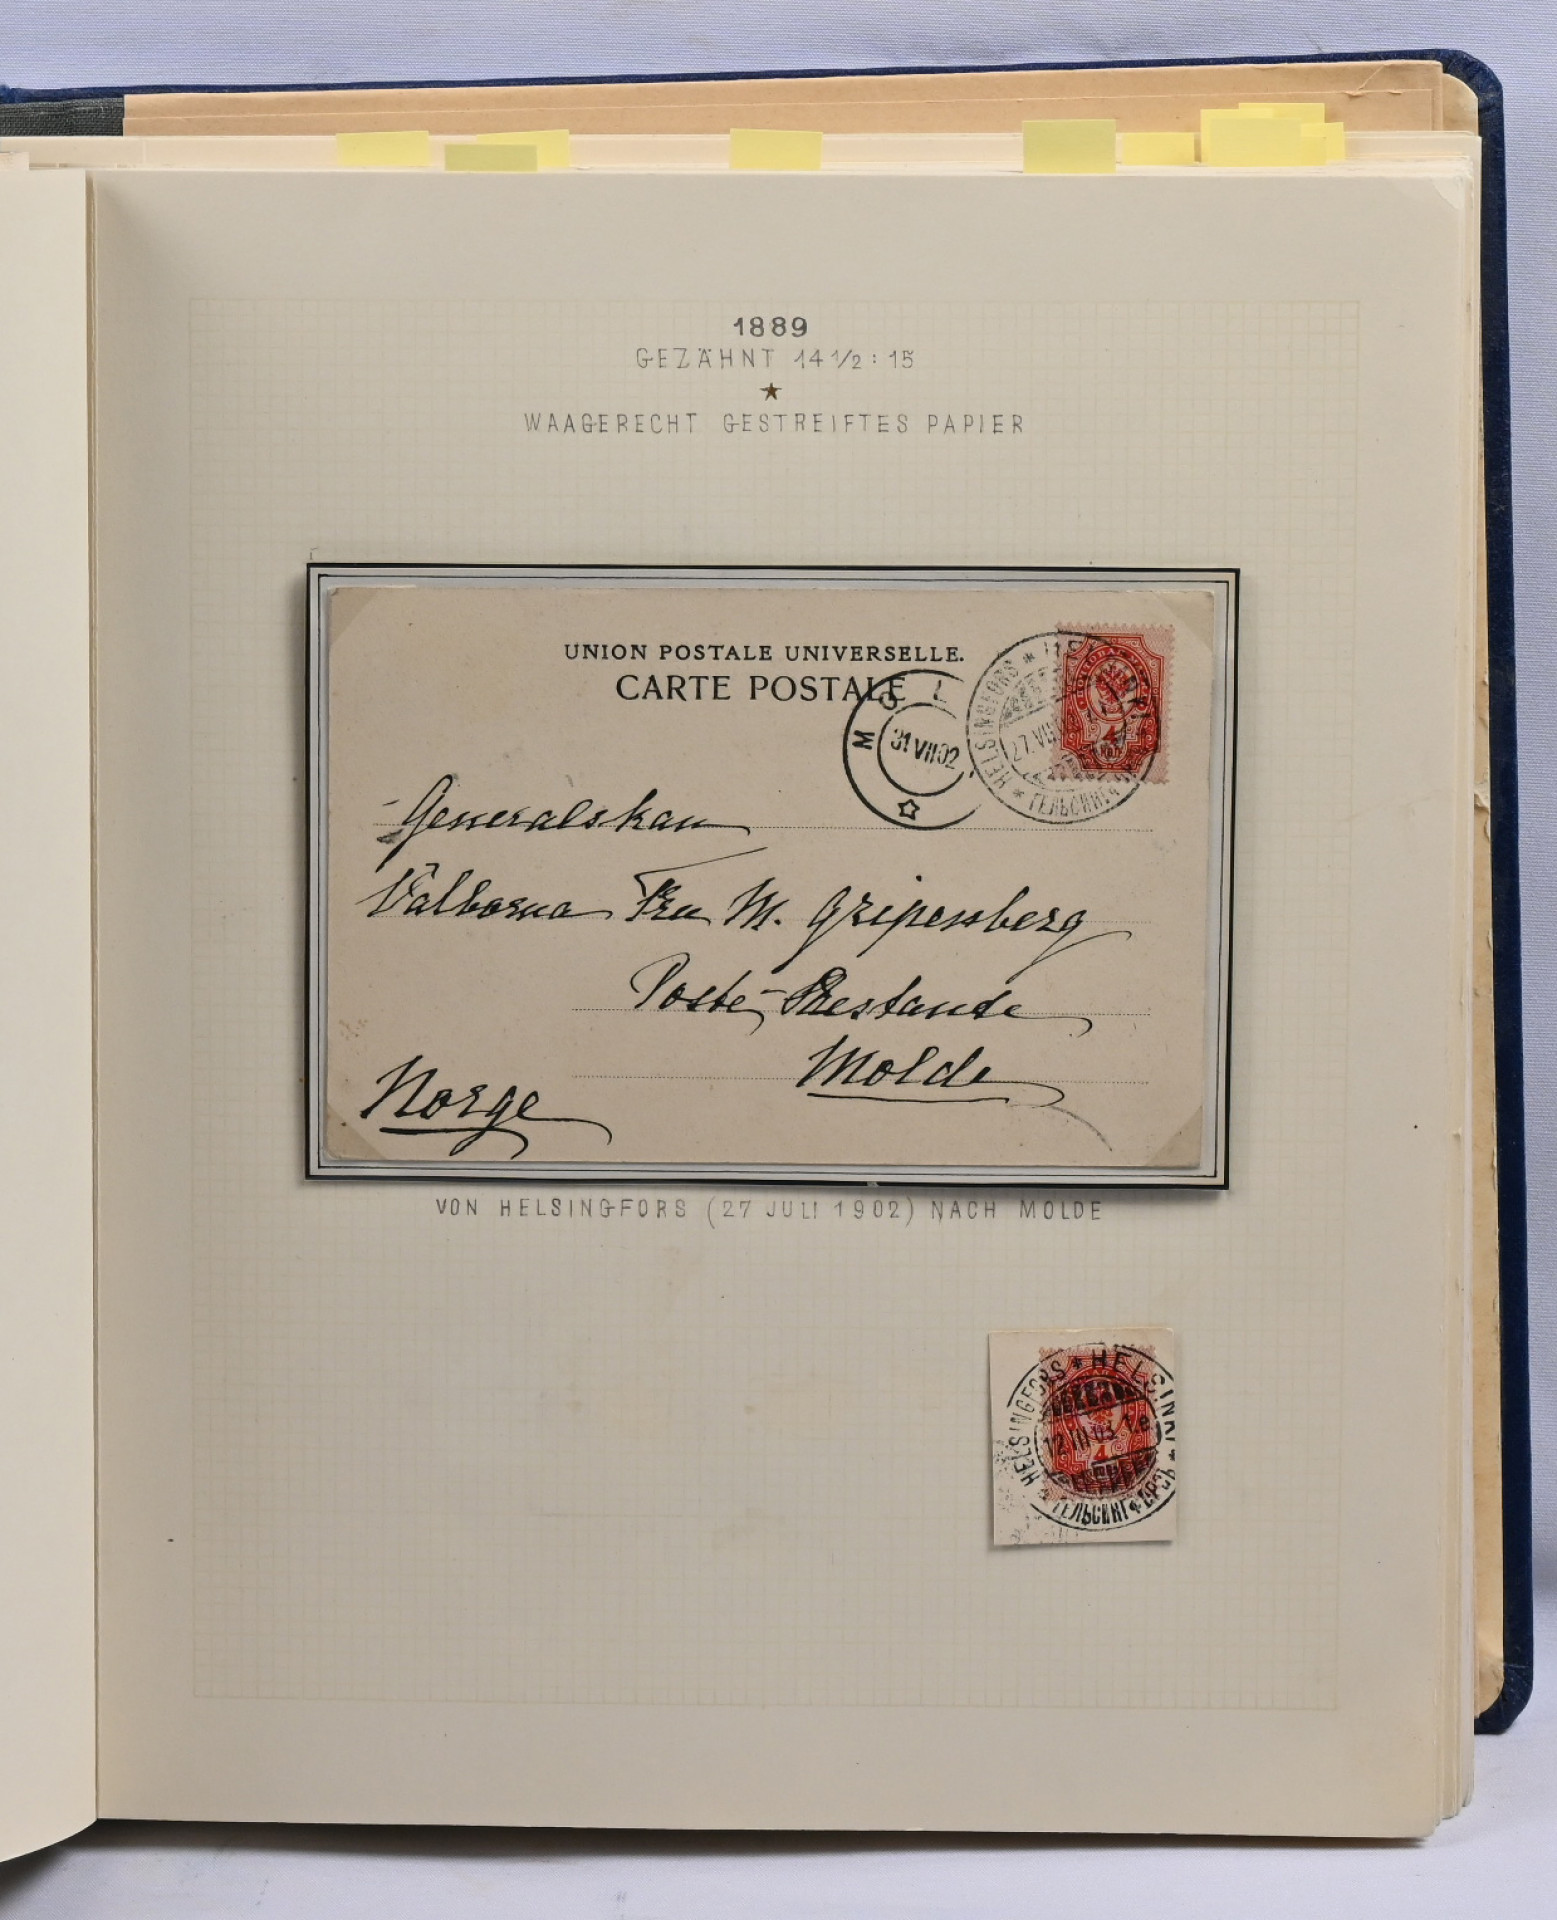 1889
GEZÄHNT 14 1/2 : 15
WAAGERECHT GESTREIFTES PAPIER
UNION POSTALE UNIVERSELLE.
CARTE POSTALE
MOL
31 VII 02
HELSINGFORS * HE
27.VII
* ГЕЛЬСИНГФ
4
Generalskan
Välborna Fru M. Gripenberg
Poste-Restante
Molde
Norge
VON HELSINGFORS (27 JULI 1902) NACH MOLDE
HELSINGFORS * HELSINKI *
12 III 03 1.e.
4
* ГЕЛЬСИНГФОРСЪ